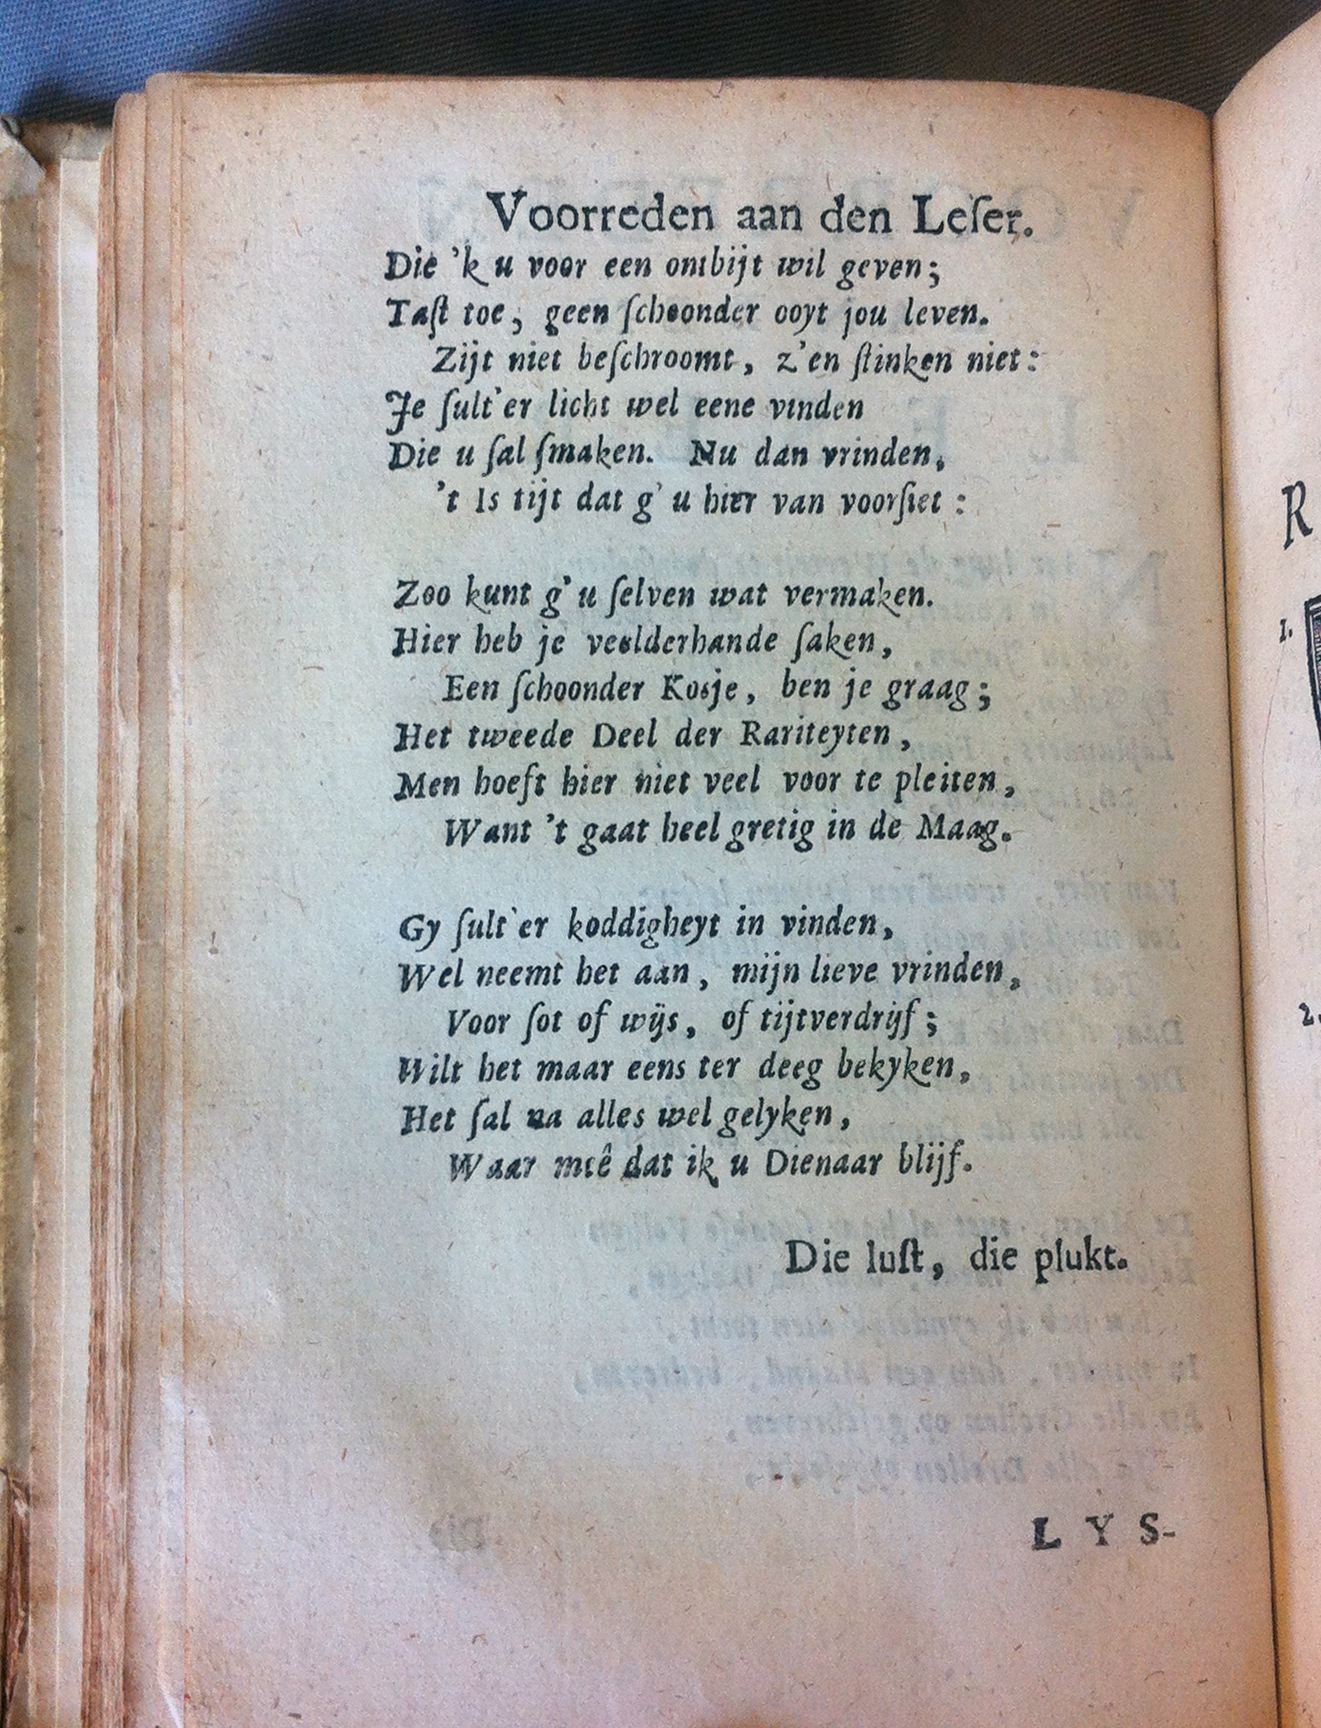 Voorreden aan den Leſer.
Die 'k u voor een ontbijt wil geven;
Taſt toe, geen ſchoonder ooyt jou leven.
Zijt niet beſchroomt, z'en ſtinken niet:
Je ſult'er licht wel eene vinden
Die u ſal ſmaken. Nu dan vrinden,
't Is tijt dat g' u hier van voorſiet:
Zoo kunt g' u ſelven wat vermaken.
Hier heb je veelderhande ſaken,
Een ſchoonder Kosje, ben je graag;
Het tweede Deel der Rariteyten,
Men hoeft hier niet veel voor te pleiten,
Want 't gaat heel gretig in de Maag.
Gy ſult'er koddigheyt in vinden,
Wel neemt het aan, mijn lieve vrinden,
Voor ſot of wijs, of tijtverdrijf;
Wilt het maar eens ter deeg bekyken,
Het ſal na alles wel gelyken,
Waar meê dat ik u Dienaar blijf.
Die luſt, die plukt.
LYS-
R
1.
2.